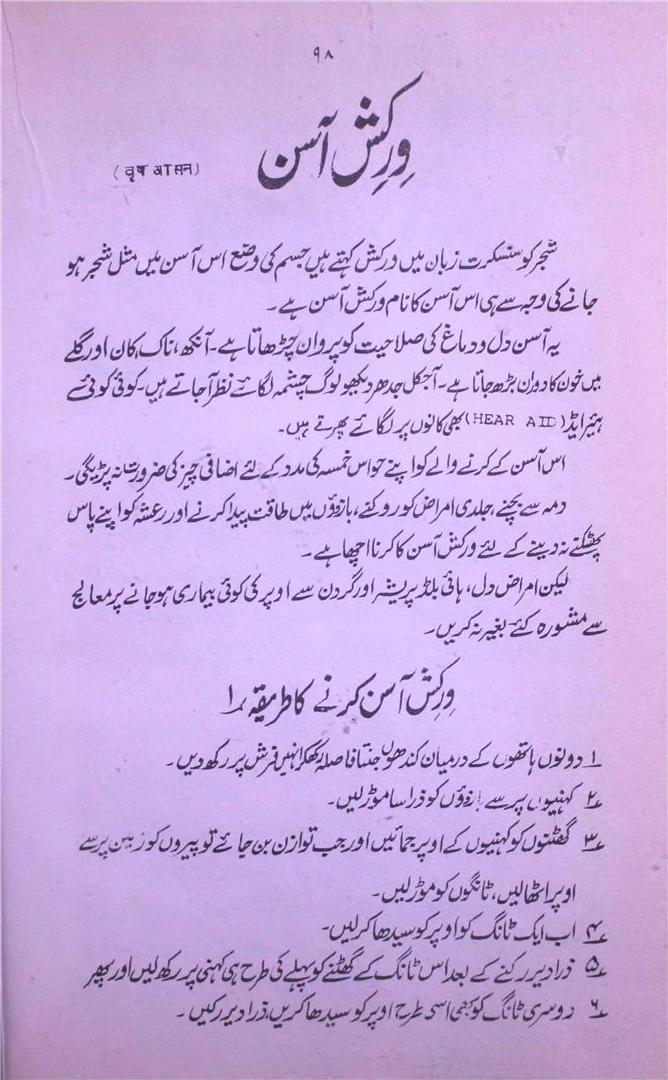 ۹۸
وِرِکش آسن
(वृष आसन)
شجر کو سنسکرت زبان میں ورکش کہتے ہیں جسم کی وضع اس آسن میں مثل شجر ہو
جانے کی وجہ سے ہی اس آسن کا نام ورکش آسن ہے۔
یہ آسن دل و دماغ کی صلاحیت کو پروان چڑھاتا ہے۔ آنکھ، ناک، کان اور گلے
میں خون کا دوران بڑھ جاتا ہے۔ آجکل جدھر دیکھو لوگ چشمہ لگائے نظر آجاتے ہیں۔ کوئی کوئی سے
ہیئر ایڈ (HEAR AID) بھی کانوں پر لگائے پھرتے ہیں۔
اس آسن کے کرنے والے کو اپنے حواس خمسہ کی مدد کے لئے اضافی چیز کی ضرورت نہ پڑیگی۔
دمہ سے بچنے، جلدی امراض کو روکنے، بازوؤں میں طاقت پیدا کرنے اور رعشہ کو اپنے پاس
پھٹکنے نہ دینے کے لئے ورکش آسن کا کرنا اچھا ہے۔
لیکن امراض دل، ہائی بلڈ پریشر اور گردن سے اوپر کی کوئی بیماری ہو جانے پر معالج
سے مشورہ کئے بغیر نہ کریں۔
وِرِکش آسن کرنے کا طریقہ ۱
۱ دونوں ہاتھوں کے درمیان کندھوں جتنا فاصلہ رکھکر انہیں فرش پر رکھ دیں۔
۲ کہنیوں پر سے بازوؤں کو ذرا سا موڑ لیں۔
۳ گھٹنوں کو کہنیوں کے اوپر جمائیں اور جب توازن بن جائے تو پیروں کو زمین پر سے
اوپر اٹھالیں، ٹانگوں کو موڑ لیں۔
۴ اب ایک ٹانگ کو اوپر کو سیدھا کر لیں۔
۵ ذرا دیر رکنے کے بعد اس ٹانگ کے گھٹنے کو پہلے کی طرح ہی کہنی پر رکھ لیں اور پھر
۶ دوسری ٹانگ کو بھی اسی طرح اوپر کو سیدھا کریں، ذرا دیر رکیں۔